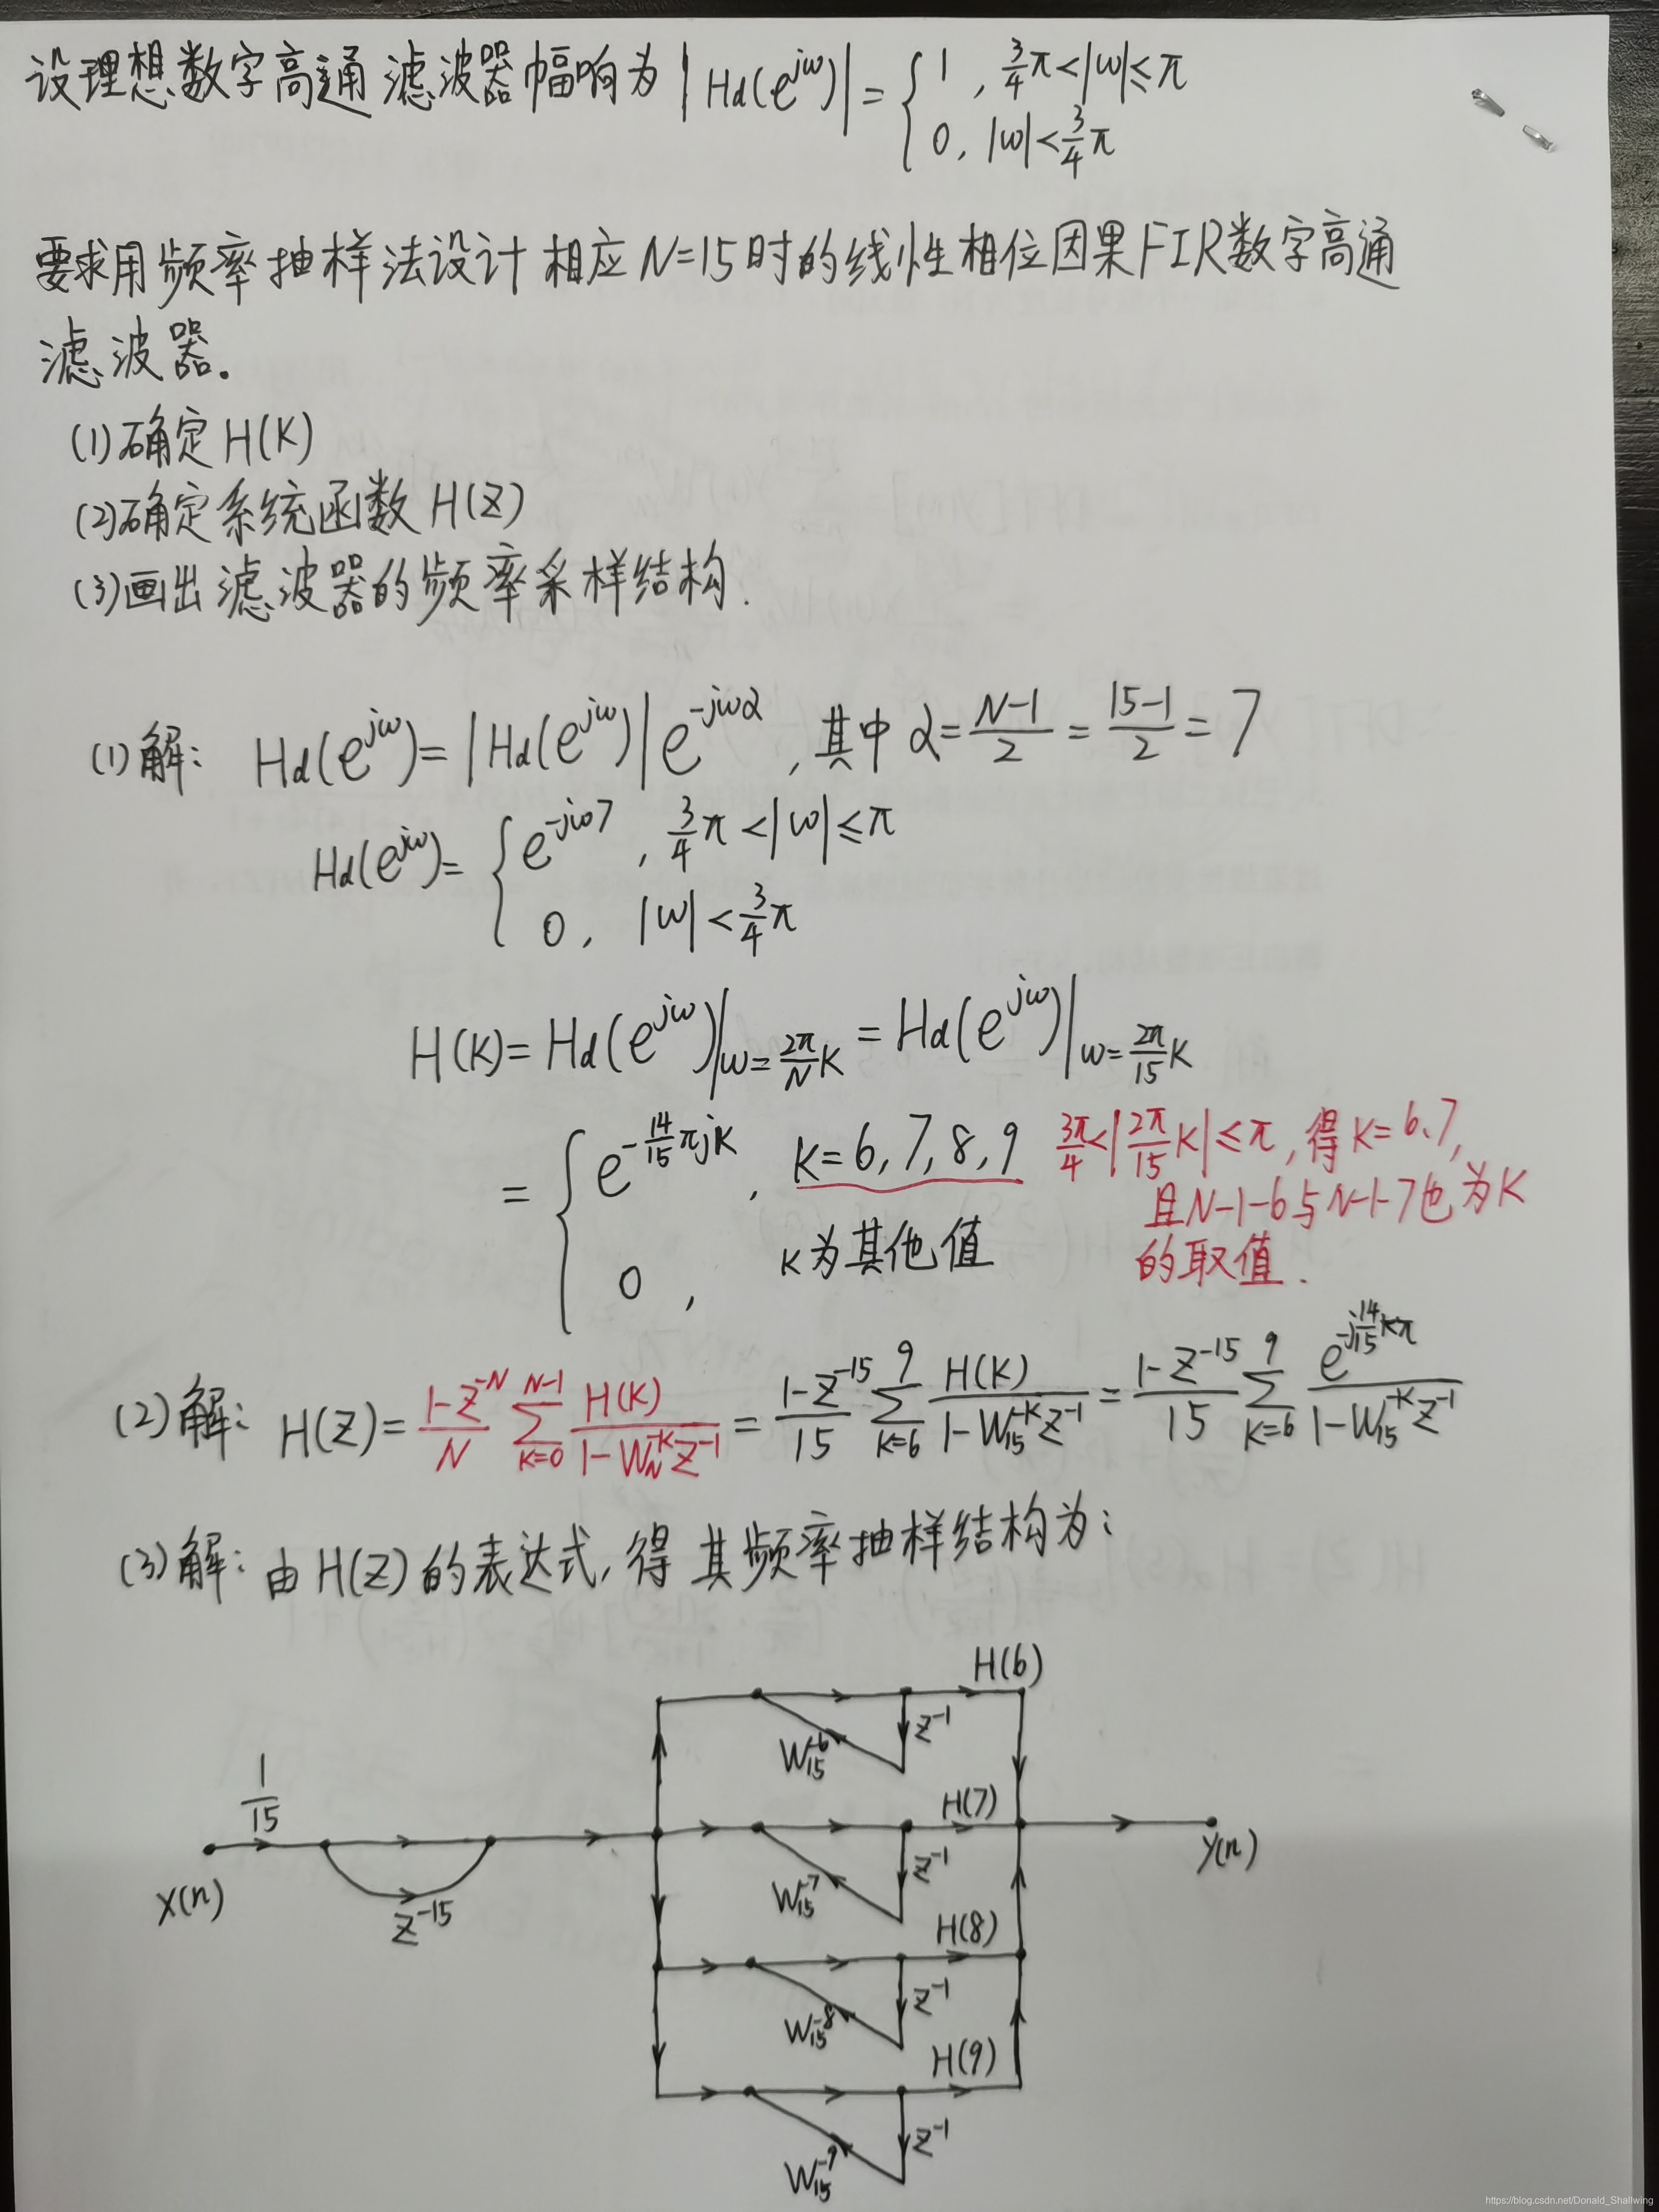 设理想数字高通滤波器幅响为 |Hd(e^{jω})| = { 1, 3/4 π<|ω|≤π
0, |ω|<3/4 π
要求用频率抽样法设计相应N=15时的线性相位因果FIR数字高通
滤波器。
(1)确定H(K)
(2)确定系统函数H(Z)
(3)画出滤波器的频率采样结构.
(1)解: Hd(e^{jω})=|Hd(e^{jω})|e^{-jωα}, 其中α=(N-1)/2=(15-1)/2=7
Hd(e^{jω})= { e^{-jω7}, 3/4 π<|ω|≤π
0, |ω|<3/4 π
H(K)=Hd(e^{jω})|ω=2π/N K =Hd(e^{jω})|ω=2π/15 K
= { e^{-14/15 πjK}, K=6,7,8,9 3π/4<|2π/15 K|≤π,得K=6、7,
且N-1-6与N-1-7也为K
0, K为其他值 的取值.
(2)解: H(Z)= (1-Z^{-N})/N ∑_{K=0}^{N-1} H(K)/(1-W_N^{-K}Z^{-1}) = (1-Z^{-15})/15 ∑_{K=6}^{9} H(K)/(1-W_15^{-K}Z^{-1}) = (1-Z^{-15})/15 ∑_{K=6}^{9} e^{-j14/15 Kπ}/(1-W_15^{-K}Z^{-1})
(3)解:由H(Z)的表达式,得其频率抽样结构为:
H(6)
Z^{-1}
W_15^{-6}
1/15
H(7)
X(n)
Z^{-15}
Z^{-1}
W_15^{-7}
y(n)
H(8)
Z^{-1}
W_15^{-8}
H(9)
Z^{-1}
W_15^{-9}
https://blog.csdn.net/Donald_Shallwing